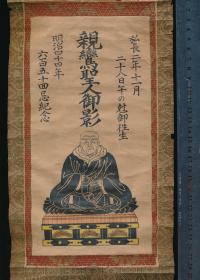 弘長二年十一月
二十八日午の尅御往生
親鸞聖人御影
明治四十四年
六百五十回忌紀念